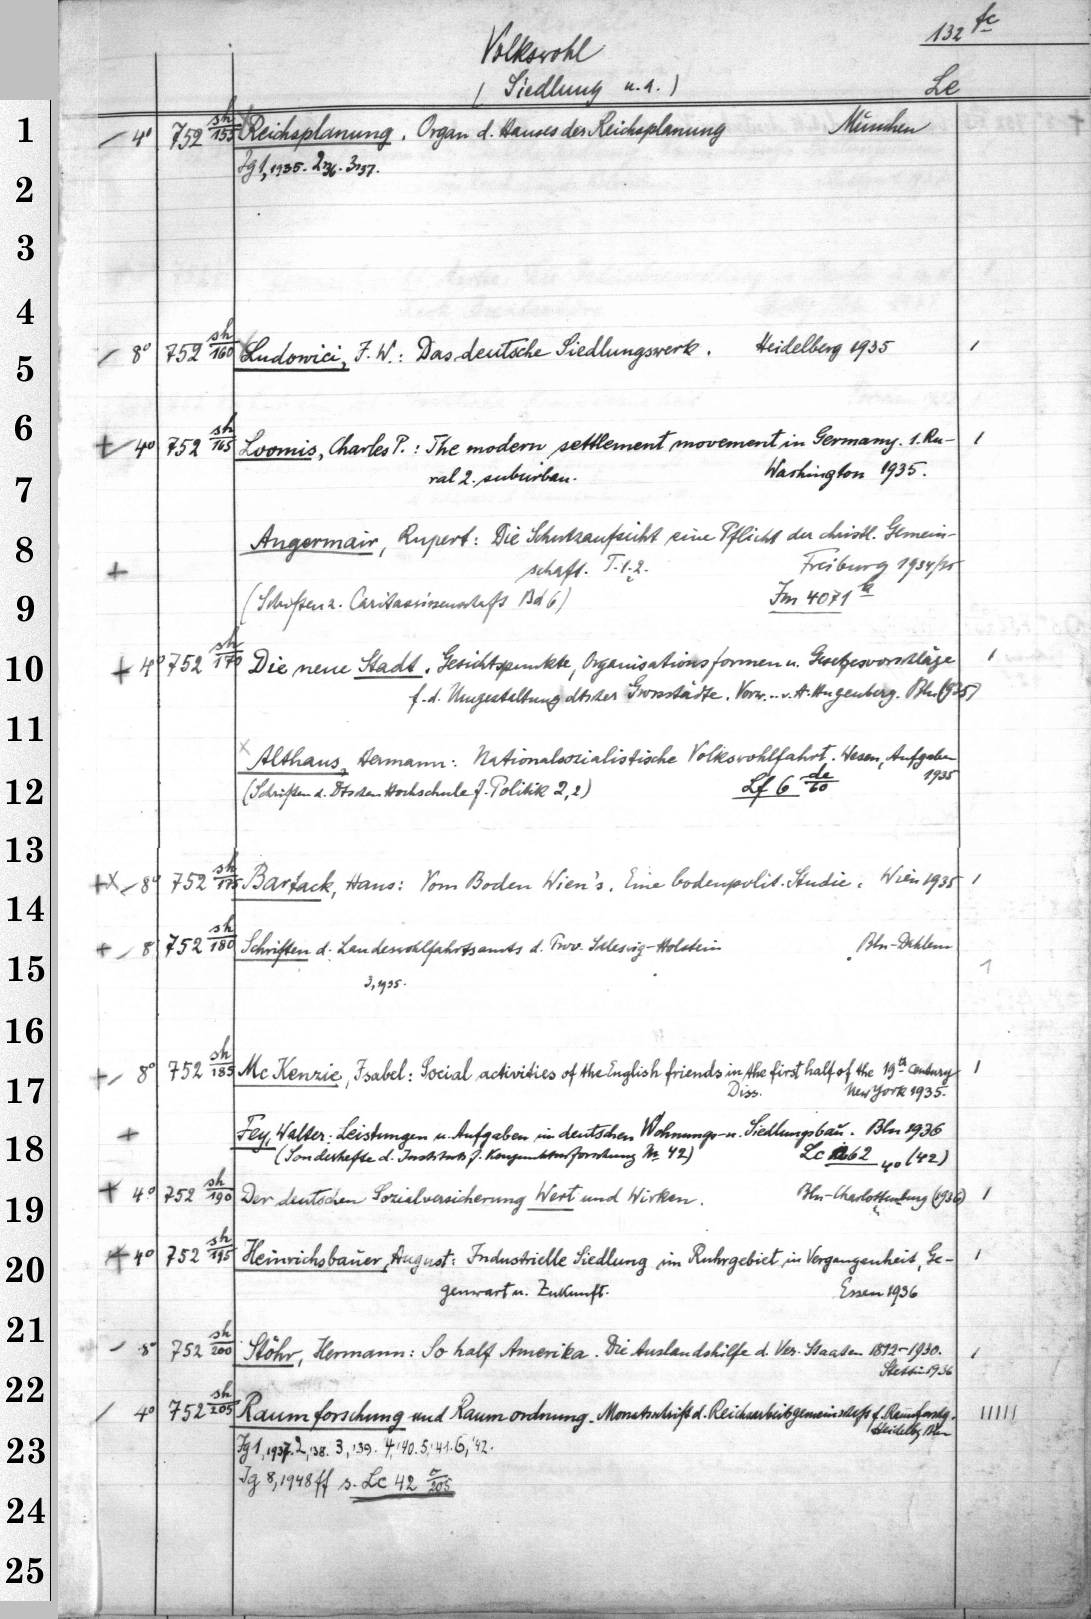 132 fc
Volkswohl
(Siedlung u. a.)
Le
1
4° 752 sh/155 Reichsplanung. Organ d. Hauses der Reichsplanung München
Jg 1, 1935. 2, 36. 3, 37.
2
3
4
5
8° 752 sh/160 Ludowici, J. W.: Das deutsche Siedlungswerk. Heidelberg 1935 1
6
+ 4° 752 sh/165 Loomis, Charles P.: The modern settlement movement in Germany. 1. Ru- 1
7
ral 2. suburban. Washington 1935.
8
Angermair, Rupert: Die Schutzaufsicht eine Pflicht der christl. Gemein-
+ schaft. T. 1. 2. Freiburg 1934/35
9
(Schriften z. Caritaswissenschaft Bd 6) 4071
10
+ 4° 752 sh/170 Die neue Stadt. Gesichtspunkte, Organisationsformen u. Gesetzesvorschläge 1
f. d. Umgestaltung dtscher Grossstädte. Vorw. v. A. Hugenberg. Bln (1935)
11
x Althaus, Hermann: Nationalsozialistische Volkswohlfahrt. Wesen, Aufgaben
1935
12
(Schriften d. Dtschen Hochschule f. Politik 2, 2) Lf 6 de/60
13
+x 8° 752 sh/175 Bartack, Hans: Vom Boden Wien's. Eine bodenpolit. Studie. Wien 1935 1
14
+ 8 752 sh/180 Schriften d. Landeswohlfahrtsamts d. Prov. Schleswig-Holstein Bln-Dahlem
15
3, 1935. 1
16
+ 8° 752 sh/185 Mc Kenzie, Isabel: Social activities of the English friends in the first half of the 19th century 1
17
Diss. New York 1935.
+ Fey, Walter: Leistungen u. Aufgaben im deutschen Wohnungs- u. Siedlungsbau. Bln 1936
18
(Sonderhefte d. Instituts f. Konjunkturforschung Nr. 42) Lc 62 4° (42)
19
+ 4° 752 sh/190 Der deutschen Sozialversicherung Wert und Wirken. Bln-Charlottenburg (1936) 1
20
+ 4° 752 sh/195 Heinrichsbauer, August: Industrielle Siedlung im Ruhrgebiet in Vergangenheit, Ge- 1
genwart u. Zukunft. Essen 1936
21
8° 752 sh/200 Stöhr, Hermann: So half Amerika. Die Auslandshilfe d. Ver. Staaten 1812-1930. 1
22
Stettin 1936
4° 752 sh/205 Raumforschung und Raumordnung. Monatsschrift d. Reichsarbeitsgemeinschaft f. Raumforschg. 11111
Heidelbg Bln
23
Jg 1, 1937. 2, '38. 3, '39. 4, '40. 5, '41. 6, '42.
Jg 8, 1948 ff s. Lc 42 a/205
24
25